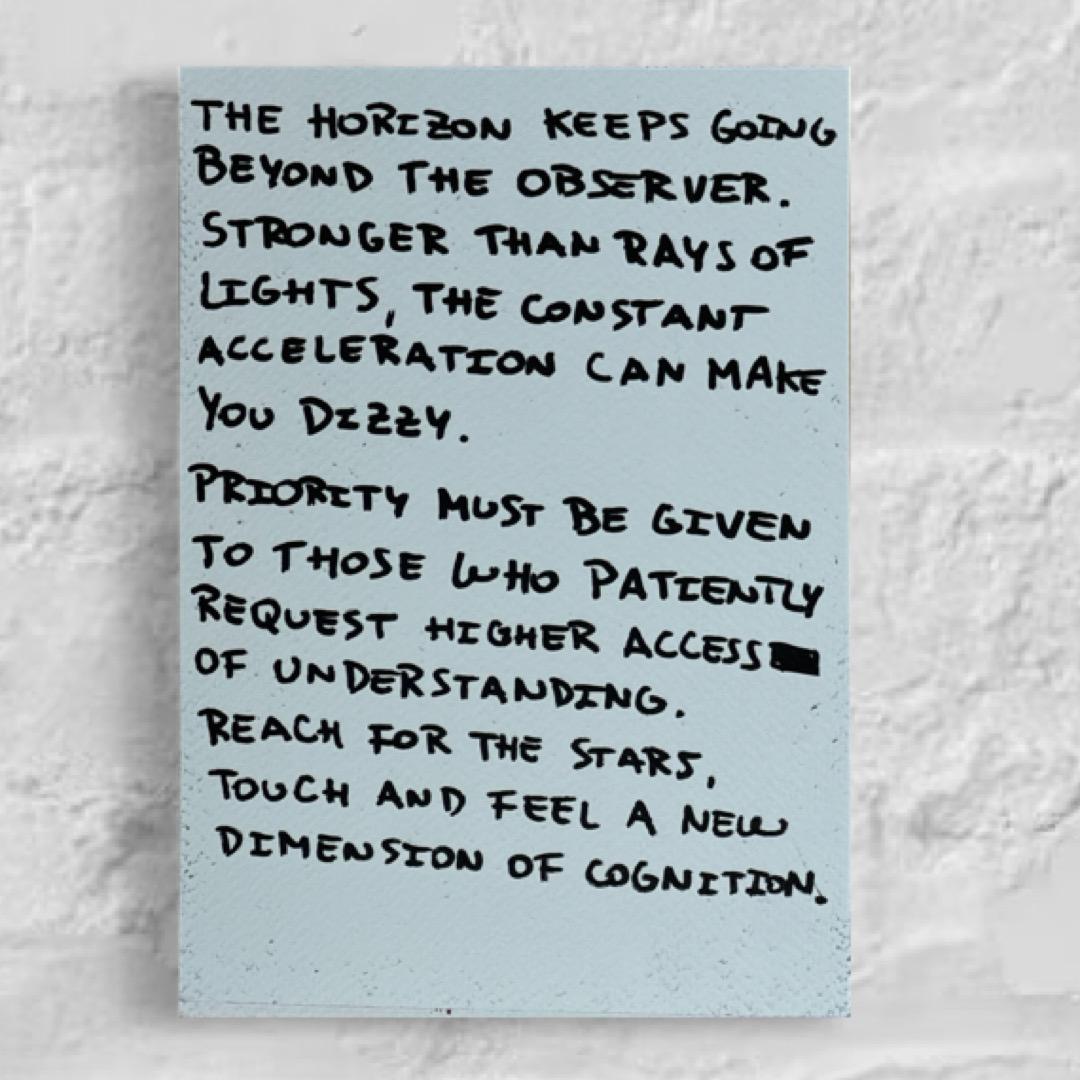 THE HORIZON KEEPS GOING
BEYOND THE OBSERVER.
STRONGER THAN RAYS OF
LIGHTS, THE CONSTANT
ACCELERATION CAN MAKE
YOU DIZZY.
PRIORITY MUST BE GIVEN
TO THOSE WHO PATIENTLY
REQUEST HIGHER ACCESS
OF UNDERSTANDING.
REACH FOR THE STARS,
TOUCH AND FEEL A NEW
DIMENSION OF COGNITION.